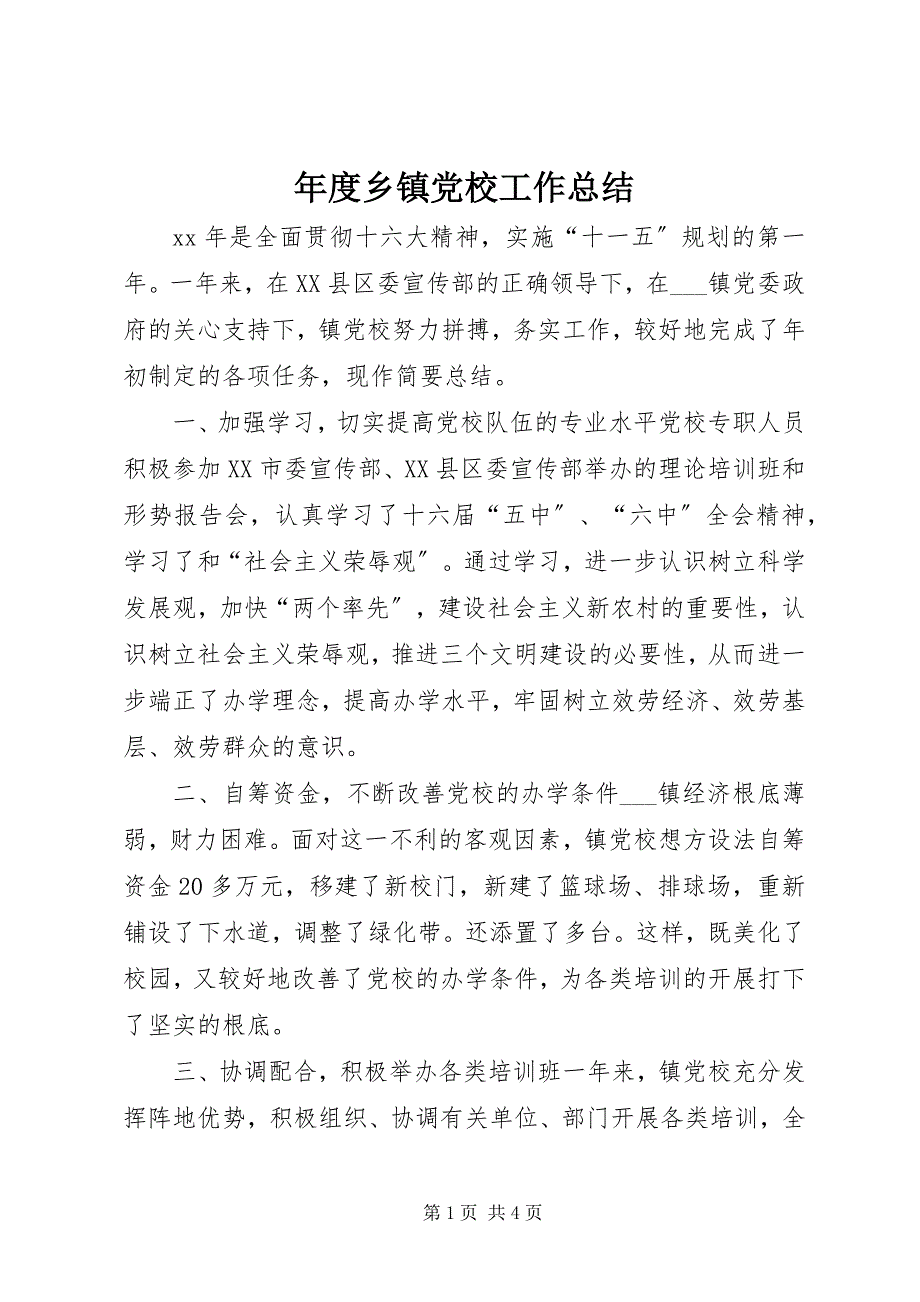 年度乡镇党校工作总结
xx 年是全面贯彻十六大精神，实施“十一五〞规划的第一
年。一年来，在 XX 县区委宣传部的正确领导下，在___镇党委政
府的关心支持下，镇党校努力拼搏，务实工作，较好地完成了年
初制定的各项任务，现作简要总结。
一、加强学习，切实提高党校队伍的专业水平党校专职人员
积极参加 XX 市委宣传部、XX 县区委宣传部举办的理论培训班和
形势报告会，认真学习了十六届“五中〞、“六中〞全会精神，
学习了和“社会主义荣辱观〞。通过学习，进一步认识树立科学
发展观，加快“两个率先〞，建设社会主义新农村的重要性，认
识树立社会主义荣辱观，推进三个文明建设的必要性，从而进一
步端正了办学理念，提高办学水平，牢固树立效劳经济、效劳基
层、效劳群众的意识。
二、自筹资金，不断改善党校的办学条件___镇经济根底薄
弱，财力困难。面对这一不利的客观因素，镇党校想方设法自筹
资金 20 多万元，移建了新校门，新建了篮球场、排球场，重新
铺设了下水道，调整了绿化带。还添置了多台。这样，既美化了
校园，又较好地改善了党校的办学条件，为各类培训的开展打下
了坚实的根底。
三、协调配合，积极举办各类培训班一年来，镇党校充分发
挥阵地优势，积极组织、协调有关单位、部门开展各类培训，全
第 1 页 共 4 页